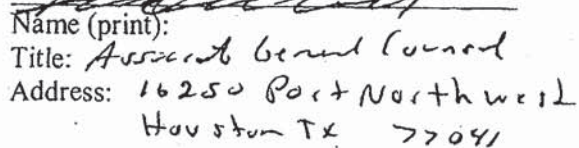 Name (print):
Title: Associate General Counsel
Address: 16250 Port Northwest
Houston TX 77041